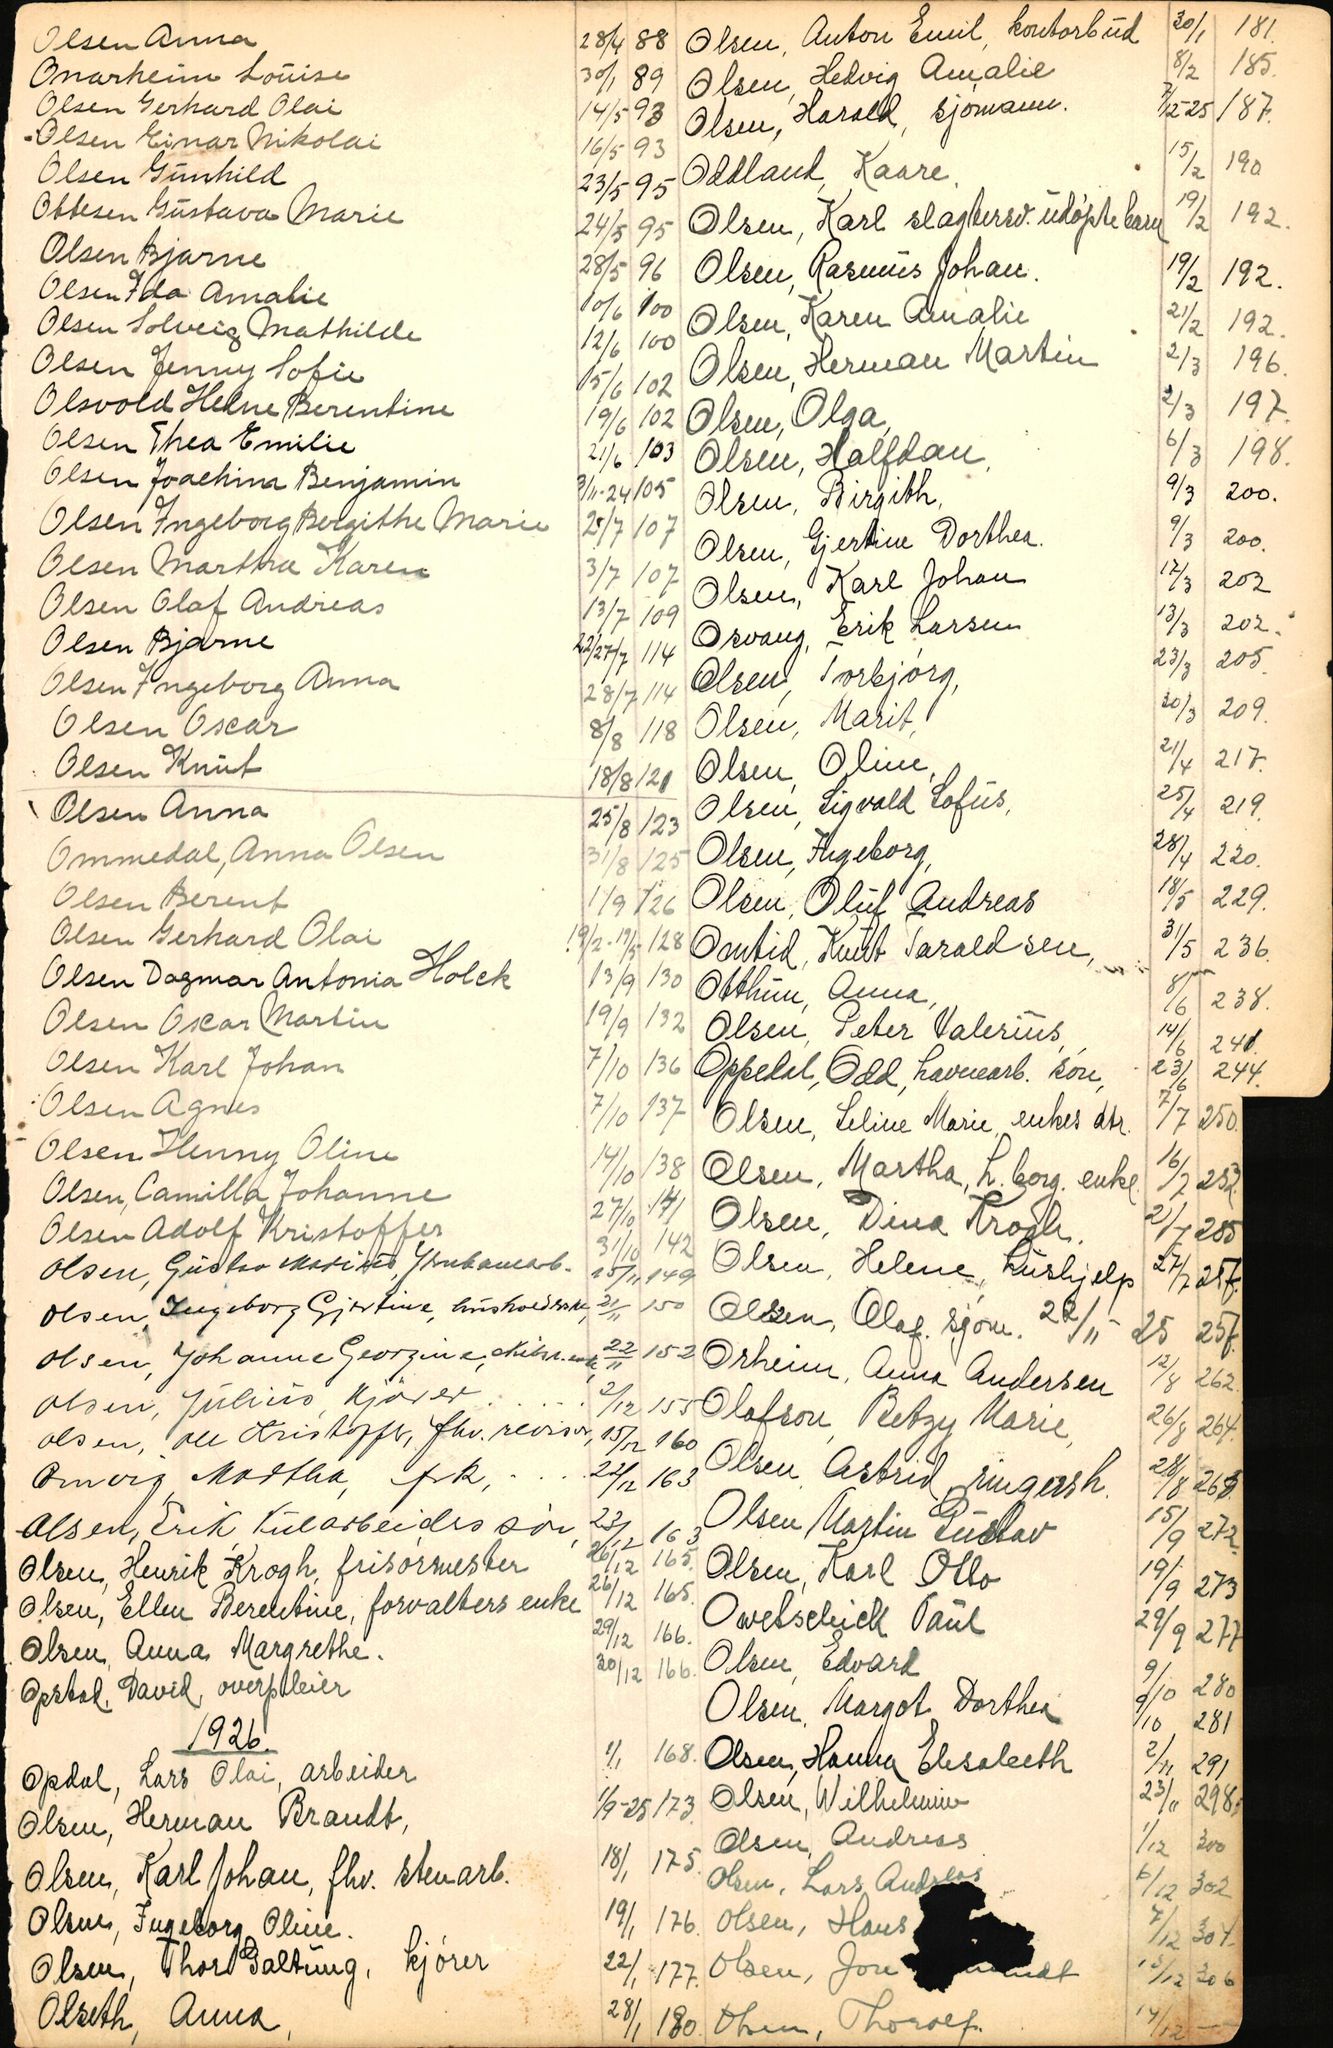 Olsen Anna 28/4 88
Onarheim Louise 30/1 89
Olsen Gerhard Olai 14/5 93
Olsen Einar Nikolai 16/5 93
Olsen Gunhild 23/5 95
Ottesen Gustava Marie 24/5 95
Olsen Bjarne 28/5 96
Olsen Ida Amalie 10/6 100
Olsen Solveig Mathilde 12/6 100
Olsen Jenny Sofie 15/6 102
Olsvold Helene Berentine 19/6 102
Olsen Thea Emilie 21/6 103
Olsen Joachim Benjamin 3/11-24 105
Olsen Ingeborg Bergithe Marie 25/7 107
Olsen Martha Karen 3/7 107
Olsen Olaf Andreas 13/7 109
Olsen Bjarne 22/27/7 114
Olsen Ingeborg Anna 28/7 114
Olsen Oscar 8/8 118
Olsen Knut 18/8 121
Olsen Anna 25/8 123
Ommedal, Anna Olsen 31/8 125
Olsen Berent 1/9 126
Olsen Gerhard Olai 128
Olsen Dagmar Antonia Holck 13/9 130
Olsen Oscar Martin 19/9 132
Olsen Karl Johan 7/10 136
Olsen Agnes 7/10 137
Olsen Henny Oline 14/10 138
Olsen, Camilla Johanne 27/10 141
Olsen Adolf Kristoffer 31/10 142
Olsen, Gustav 15/11 149
Olsen, Ingeborg Gjertine, 21/11 150
Olsen, Johanne Georgine, 22/11 152
Olsen, Julius, kjører 2/12 155
Olsen, Ole Kristoffer, fhv. revisor, 15/12 160
Omvig, Martha, frk, 22/12 163
Olsen, Erik, Kularbeiders søn, 23/12 163
Olsen, Henrik Krogh, frisørmester 26/12 165.
Olsen, Ellen Berentine, forvalters enke 26/12 165.
Olsen, Anna Margrethe. 29/12 166.
Opstad, David, overpleier 30/12 166.
1926.
Opdal, Lars Olai, arbeider 1/1 168.
Olsen, Herman Brandt, 1/9-25 173.
Olsen, Karl Johan, fhv. stenarb. 18/1 175.
Olsen, Ingeborg Oline. 19/1 176.
Olsen, Thor Galtung, kjører 22/1 177.
Olseth, Anna, 28/1 180.
Olsen, Anton Emil, kontorbud 30/1 181.
Olsen, Hedvig Amalie 8/2 185.
Olsen, Harald, sjømann. 7/12-25 187.
Oddland, Kaare. 15/2 190
Olsen, Karl slagtersv. udøpte barn 19/2 192.
Olsen, Rasmus Johan. 19/2 192.
Olsen, Karen Amalie 21/2 192.
Olsen, Herman Martin 2/3 196.
Olsen, Olga, 2/3 197.
Olsen, Halfdan, 6/3 198.
Olsen, Birgith, 9/3 200.
Olsen, Gjertine Dorthea. 9/3 200.
Olsen, Karl Johan 12/3 202
Osvang, Erik Larsen 13/3 202.
Olsen, Torbjørg, 23/3 205.
Olsen, Marit, 30/3 209.
Olsen, Oline, 21/4 217.
Olsen, Sigvald Sofus, 25/4 219.
Olsen, Ingeborg, 28/4 220.
Olsen, Oluf Andreas 18/5 229.
Omtid, Knut Taraldsen, 31/5 236.
Otthun, Anna, 8/6 238.
Olsen, Peter Valerius, 14/6 241.
Oppedal, Odd, havnearb. søn, 23/6 244.
Olsen, Seline Marie, enkes dtr. 7/7 250.
Olsen, Martha, h. borg. enke 16/7
Olsen, Dina Krogh. 21/7 255
Olsen, Helene, hushjelp 27/7 257.
Olsen, Olaf. sjøm. 22/11 25 257.
Orheim, Anna Andersen 12/8 262.
Olafson, Betzy Marie, 26/8 264.
Olsen, Astrid, ringersh. 28/8
Olsen Martin Gustav 15/9 272
Olsen, Karl Otto 19/9 273
Owetschick Paul 29/9 277
Olsen, Edvard 9/10 280
Olsen, Margot Dorthea 281
Olsen, Hanna Elesabeth 2/11 291
Olsen, Wilhelmine 23/11 298.
Olsen, Andreas 1/12 300
Olsen, Lars Andreas 6/12 302
Olsen, Hans 7/12 304.
Olsen, Jon 306
Olsen, Thoralf. 14/12 —